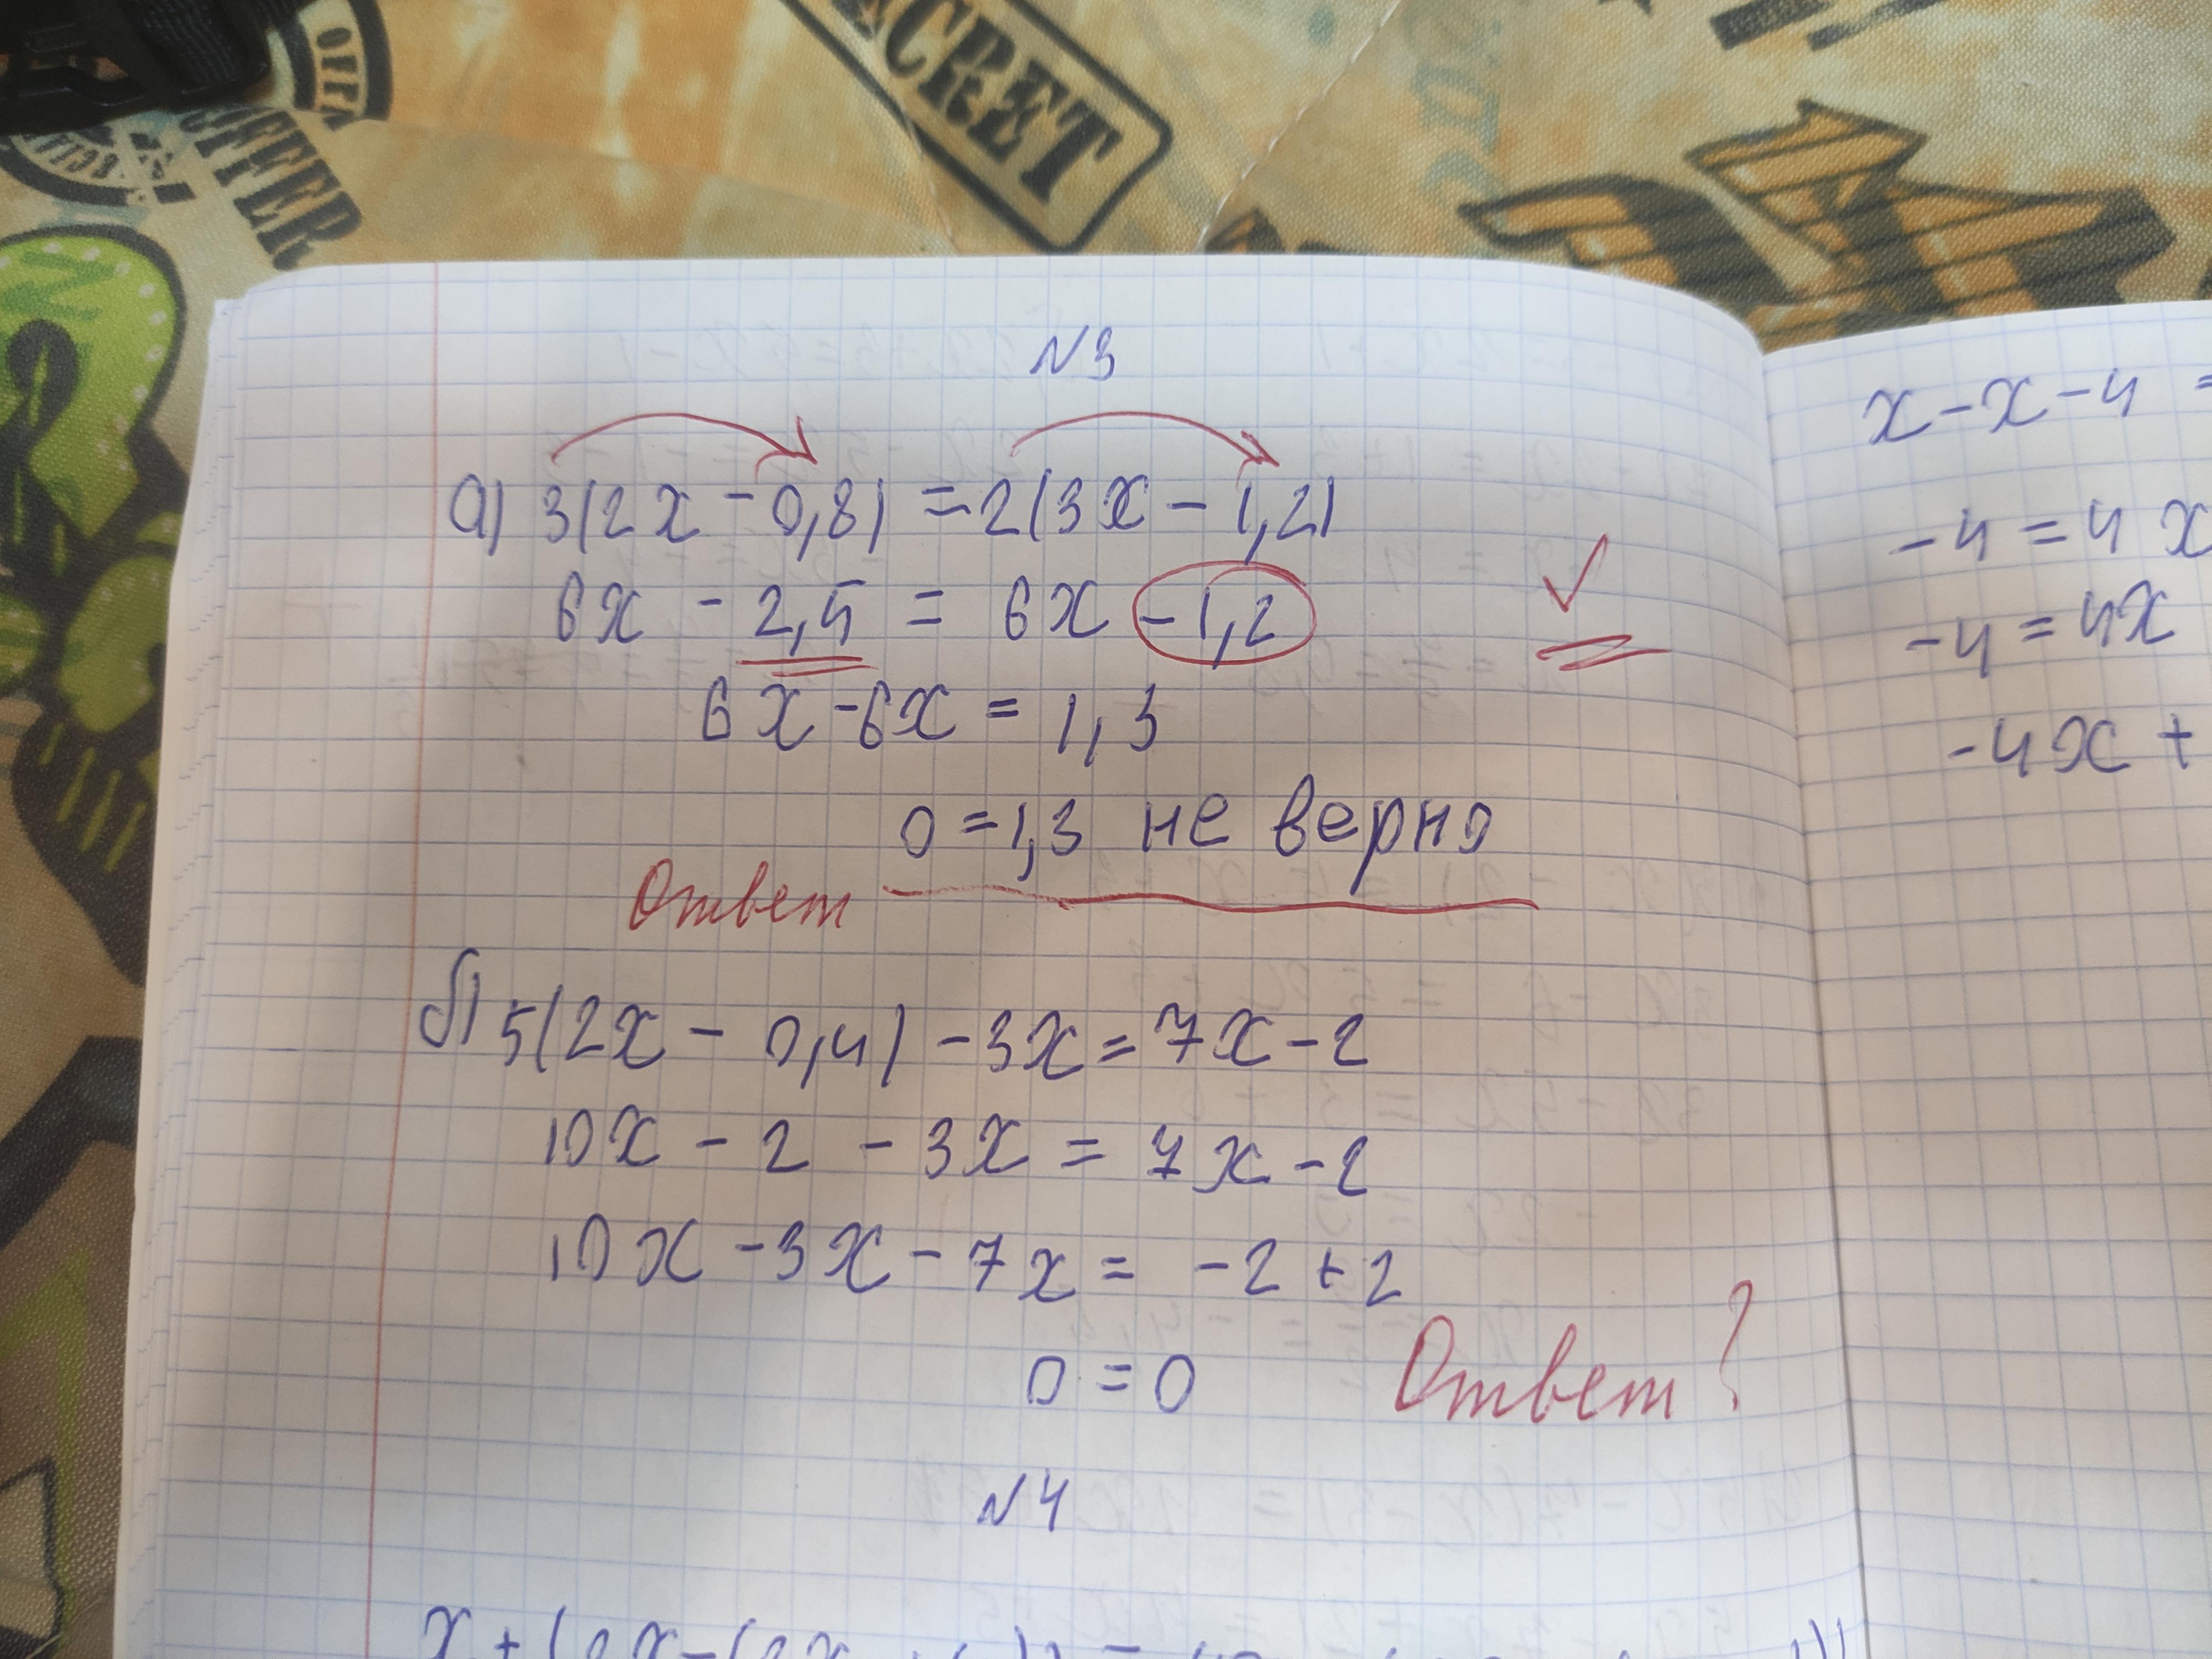 OFFER
SECRET
N3
а) 3(2x - 0,8) = 2(3x - 1,2)
6x - 2,5 = 6x - 1,2
6x - 6x = 1,3
0 = 1,3 не верно
Ответ
б) 5(2x - 0,4) - 3x = 7x - 2
10x - 2 - 3x = 7x - 2
10x - 3x - 7x = -2 + 2
0 = 0 Ответ?
N4
x - x - 4 =
-4 = 4x
-4 = 4x
-4x +